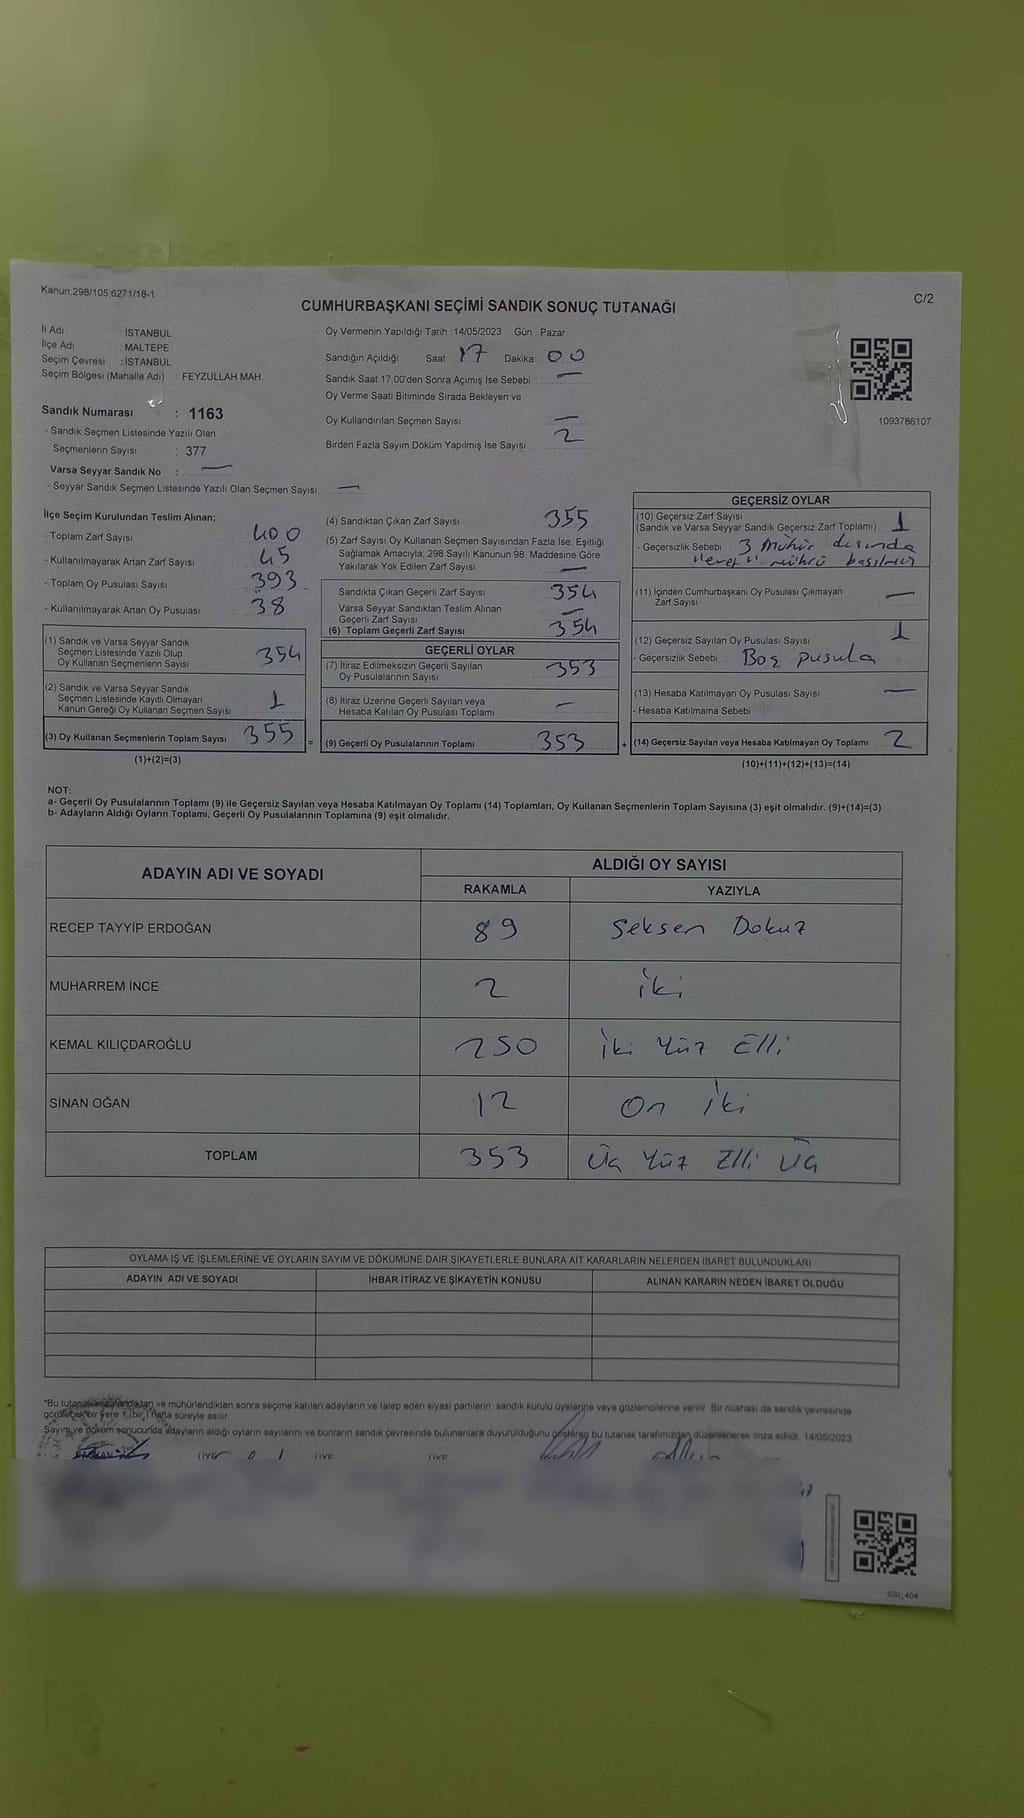 Kanun;298/105;6271/18-1
C/2
CUMHURBAŞKANI SEÇİMİ SANDIK SONUÇ TUTANAĞI
İl Adı : İSTANBUL
İlçe Adı : MALTEPE
Seçim Çevresi : İSTANBUL
Seçim Bölgesi (Mahalle Adı) : FEYZULLAH MAH.
Sandık Numarası : 1163
- Sandık Seçmen Listesinde Yazılı Olan
Seçmenlerin Sayısı : 377
Varsa Seyyar Sandık No : —
- Seyyar Sandık Seçmen Listesinde Yazılı Olan Seçmen Sayısı: —
Oy Vermenin Yapıldığı Tarih : 14/05/2023 Gün : Pazar
Sandığın Açıldığı Saat 17 Dakika 00
Sandık Saat 17:00'den Sonra Açımış İse Sebebi : —
Oy Verme Saati Bitiminde Sırada Bekleyen ve
Oy Kullandırılan Seçmen Sayısı —
Birden Fazla Sayım Döküm Yapılmış İse Sayısı 2
1093786107
İlçe Seçim Kurulundan Teslim Alınan;
- Toplam Zarf Sayısı 400
- Kullanılmayarak Artan Zarf Sayısı 45
- Toplam Oy Pusulası Sayısı 393
- Kullanılmayarak Artan Oy Pusulası 38
(1) Sandık ve Varsa Seyyar Sandık
Seçmen Listesinde Yazılı Olup
Oy Kullanan Seçmenlerin Sayısı 354
(2) Sandık ve Varsa Seyyar Sandık
Seçmen Listesinde Kayıtlı Olmayan
Kanun Gereği Oy Kullanan Seçmen Sayısı 1
(3) Oy Kullanan Seçmenlerin Toplam Sayısı 355 =
(1)+(2)=(3)
(4) Sandıktan Çıkan Zarf Sayısı 355
(5) Zarf Sayısı Oy Kullanan Seçmen Sayısından Fazla İse, Eşitliği
Sağlamak Amacıyla, 298 Sayılı Kanunun 98. Maddesine Göre
Yakılarak Yok Edilen Zarf Sayısı —
Sandıkta Çıkan Geçerli Zarf Sayısı 354
Varsa Seyyar Sandıktan Teslim Alınan
Geçerli Zarf Sayısı —
(6) Toplam Geçerli Zarf Sayısı 354
GEÇERLİ OYLAR
(7) İtiraz Edilmeksizin Geçerli Sayılan
Oy Pusulalarının Sayısı 353
(8) İtiraz Üzerine Geçerli Sayılan veya
Hesaba Katılan Oy Pusulası Toplamı —
(9) Geçerli Oy Pusulalarının Toplamı 353 +
GEÇERSİZ OYLAR
(10) Geçersiz Zarf Sayısı
(Sandık ve Varsa Seyyar Sandık Geçersiz Zarf Toplamı) 1
- Geçersizlik Sebebi 3 mühür dışında
"evet" mührü basılmış
(11) İçinden Cumhurbaşkanı Oy Pusulası Çıkmayan
Zarf Sayısı —
(12) Geçersiz Sayılan Oy Pusulası Sayısı 1
- Geçersizlik Sebebi : Boş pusula
(13) Hesaba Katılmayan Oy Pusulası Sayısı —
- Hesaba Katılmama Sebebi
(14) Geçersiz Sayılan veya Hesaba Katılmayan Oy Toplamı 2
(10)+(11)+(12)+(13)=(14)
NOT:
a- Geçerli Oy Pusulalarının Toplamı (9) ile Geçersiz Sayılan veya Hesaba Katılmayan Oy Toplamı (14) Toplamları, Oy Kullanan Seçmenlerin Toplam Sayısına (3) eşit olmalıdır. (9)+(14)=(3)
b- Adayların Aldığı Oyların Toplamı, Geçerli Oy Pusulalarının Toplamına (9) eşit olmalıdır.
ADAYIN ADI VE SOYADI ALDIĞI OY SAYISI
RAKAMLA YAZIYLA
RECEP TAYYİP ERDOĞAN 89 Seksen Dokuz
MUHARREM İNCE 2 iki
KEMAL KILIÇDAROĞLU 250 iki Yüz Elli
SİNAN OĞAN 12 On iki
TOPLAM 353 Üç Yüz Elli Üç
OYLAMA İŞ VE İŞLEMLERİNE VE OYLARIN SAYIM VE DÖKÜMÜNE DAİR ŞİKAYETLERLE BUNLARA AİT KARARLARIN NELERDEN İBARET BULUNDUKLARI
ADAYIN ADI VE SOYADI İHBAR İTİRAZ VE ŞİKAYETİN KONUSU ALINAN KARARIN NEDEN İBARET OLDUĞU
*Bu tutanak imzalandıktan ve mühürlendikten sonra seçime katılan adayların ve talep eden siyasi partilerin sandık kurulu üyelerine veya gözlemcilerine verilir. Bir nüshası da sandık çevresinde
görülecek bir yere 1 (bir) hafta süreyle asılır.
Sayım ve döküm sonucunda adayların aldığı oyların sayılarını ve bunların sandık çevresinde bulunanlara duyurulduğunu gösteren bu tutanak tarafımızdan düzenlenerek imza edildi. 14/05/2023
BAŞKAN ÜYE ÜYE ÜYE
SSI_404